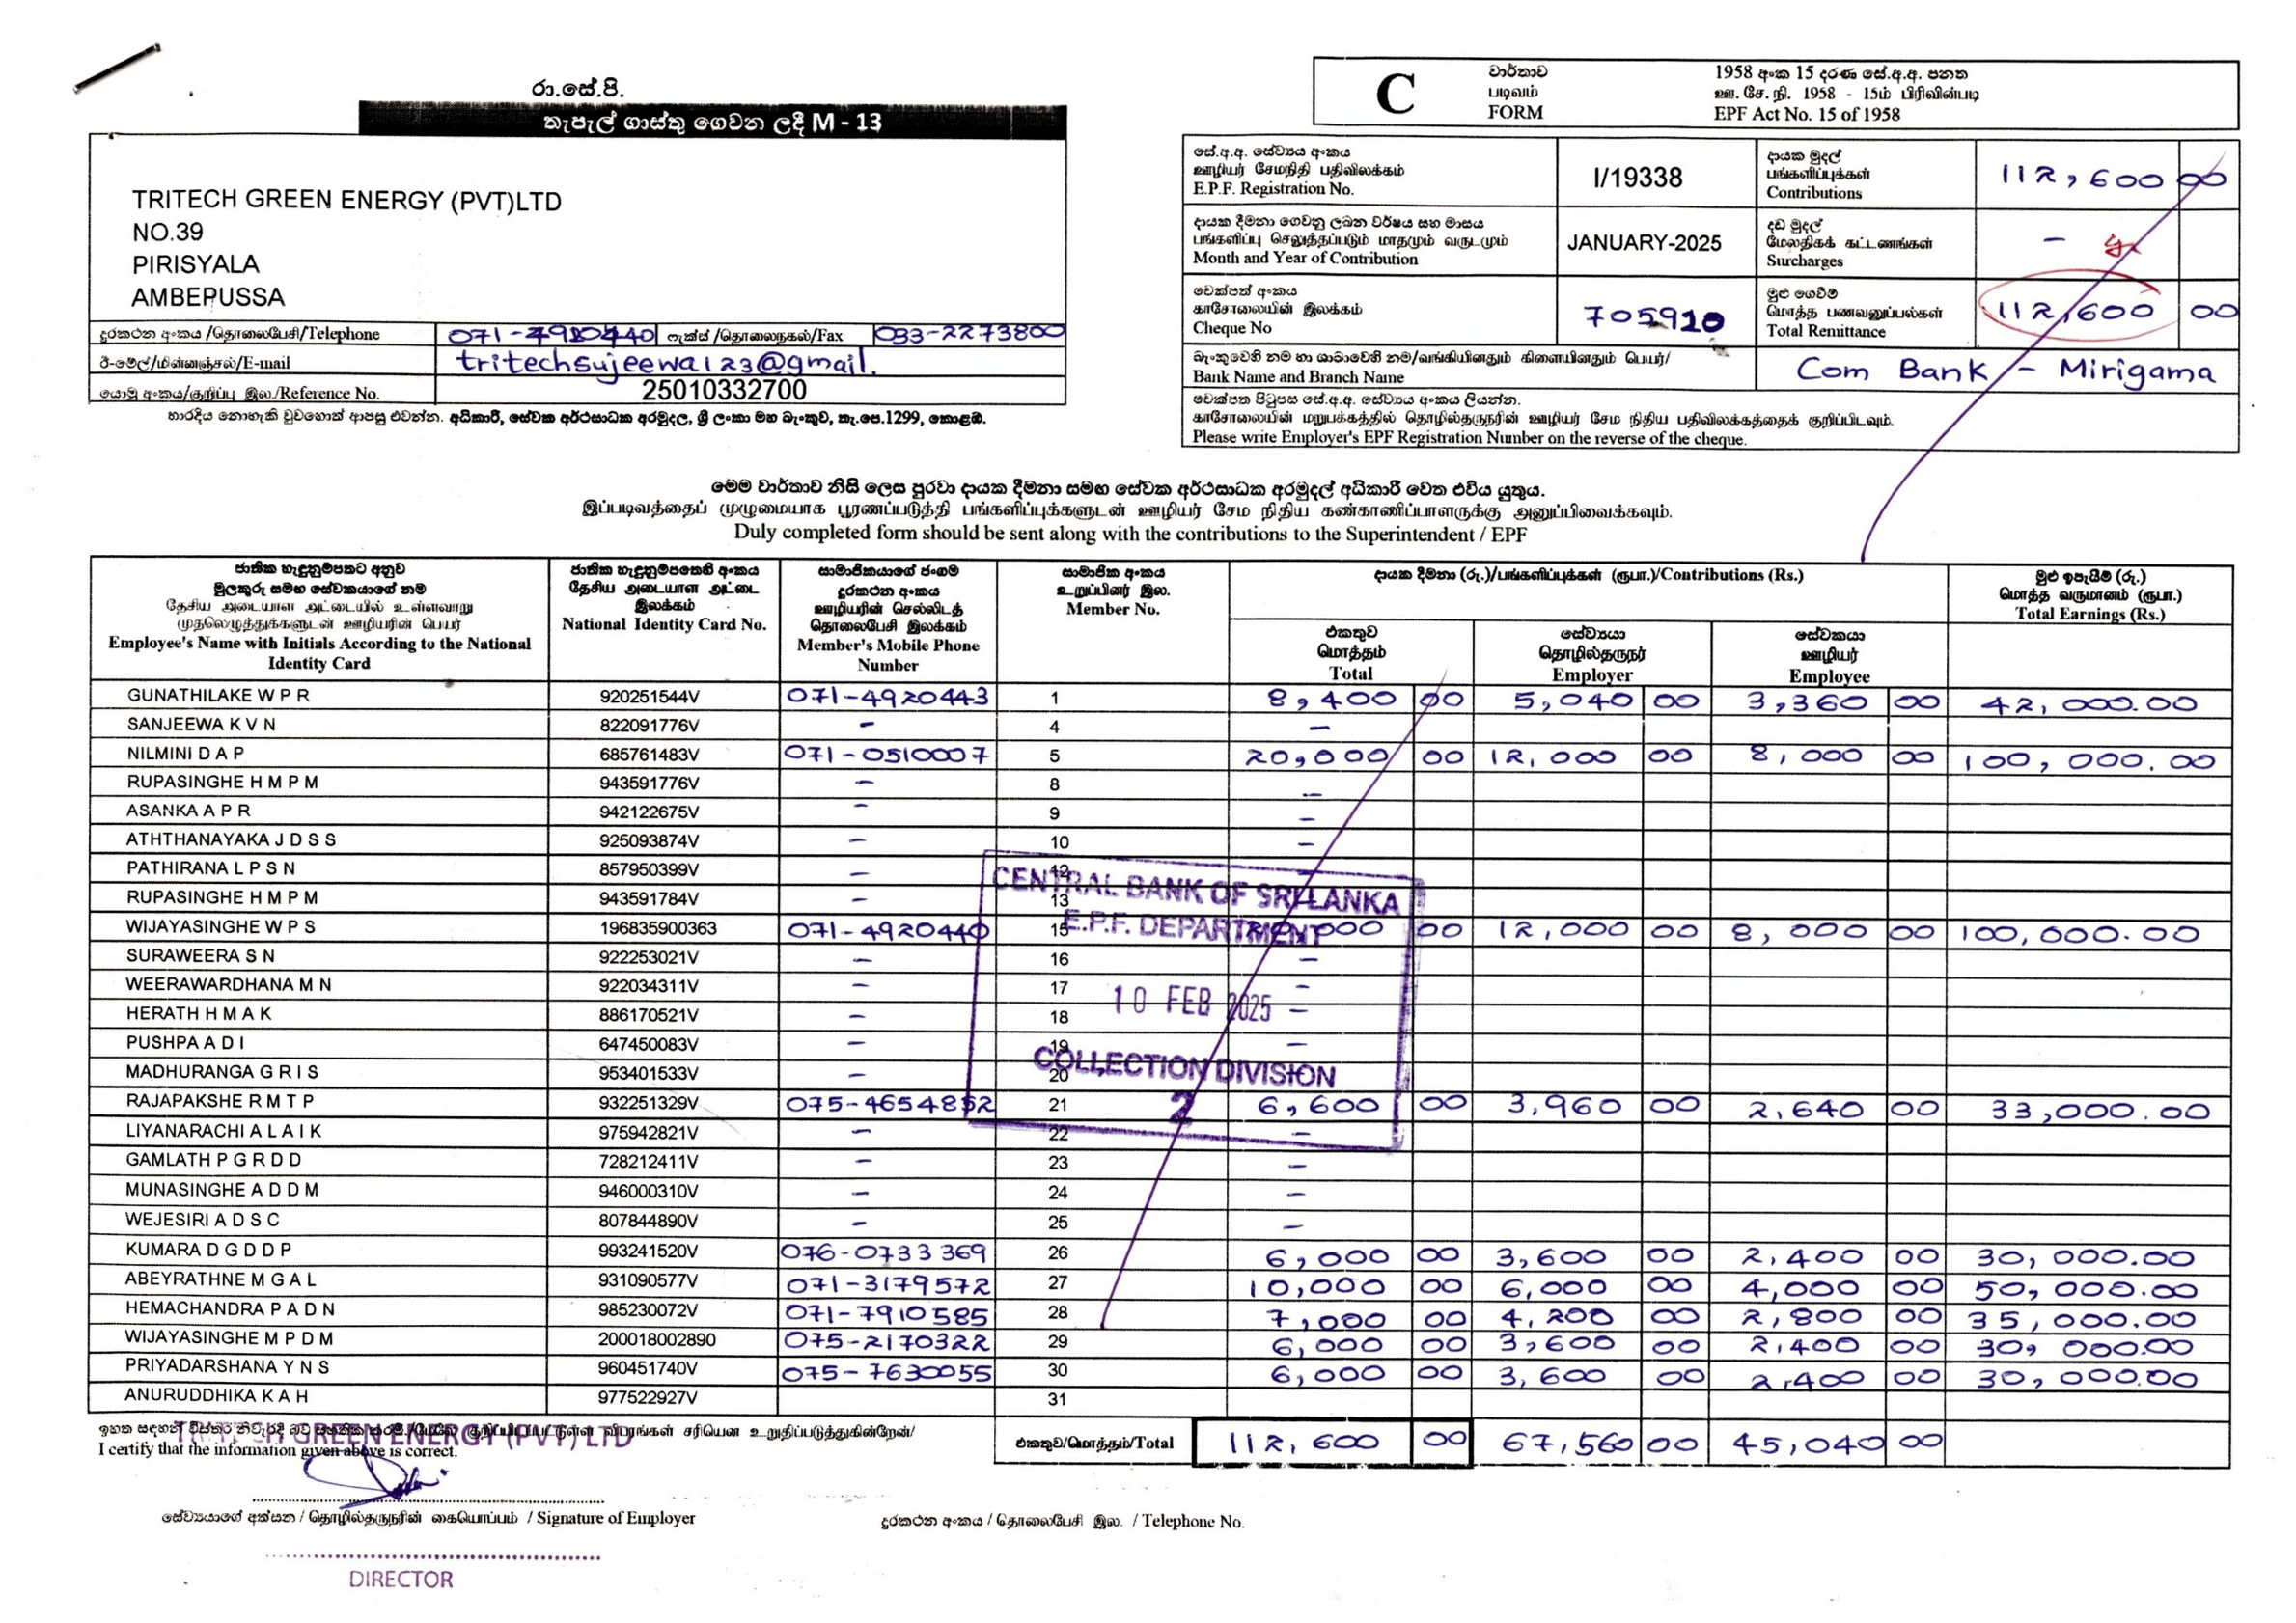 රා.සේ.පි.
තැපැල් ගාස්තු ගෙවන ලදී M - 13
TRITECH GREEN ENERGY (PVT)LTD
NO.39
PIRISYALA
AMBEPUSSA
දුරකථන අංකය /தொலைபேசி/Telephone 071-4920440 ෆැක්ස් /தொலைநகல்/Fax 033-2273800
ඊ-මේල්/மின்னஞ்சல்/E-mail tritechsujeewa123@gmail.
යොමු අංකය/குறிப்பு இல./Reference No. 25010332700
භාරදිය නොහැකි වුවහොත් ආපසු එවන්න. අධිකාරී, සේවක අර්ථසාධක අරමුදල, ශ්‍රී ලංකා මහ බැංකුව, තැ.පෙ.1299, කොළඹ.
C
වාර්තාව
படிவம்
FORM
1958 අංක 15 දරණ සේ.අ.අ. පනත
ஊ. சே. நி. 1958 - 15ம் பிரிவின்படி
EPF Act No. 15 of 1958
සේ.අ.අ. සේව්‍යය අංකය
ஊழியர் சேமநிதி பதிவிலக்கம்
E.P.F. Registration No.
I/19338
දායක මුදල්
பங்களிப்புக்கள்
Contributions
112,600 00
දායක දීමනා ගෙවනු ලබන වර්ෂය සහ මාසය
பங்களிப்பு செலுத்தப்படும் மாதமும் வருடமும்
Month and Year of Contribution
JANUARY-2025
දඩ මුදල්
மேலதிகக் கட்டணங்கள்
Surcharges
-
චෙක්පත් අංකය
காசோலையின் இலக்கம்
Cheque No
705920
මුළු ගෙවීම්
மொத்த பணவனுப்பல்கள்
Total Remittance
112,600 00
බැංකුවෙහි නම හා ශාඛාවෙහි නම/வங்கியினதும் கிளையினதும் பெயர்/
Bank Name and Branch Name
Com Bank - Mirigama
චෙක්පත පිටුපස සේ.අ.අ. සේව්‍යය අංකය ලියන්න.
காசோலையின் மறுபக்கத்தில் தொழில்தருநரின் ஊழியர் சேம நிதிய பதிவிலக்கத்தைக் குறிப்பிடவும்.
Please write Employer's EPF Registration Number on the reverse of the cheque.
මෙම වාර්තාව නිසි ලෙස පුරවා දායක දීමනා සමඟ සේවක අර්ථසාධක අරමුදල් අධිකාරී වෙත එවිය යුතුය.
இப்படிவத்தைப் முழுமையாக பூரணப்படுத்தி பங்களிப்புக்களுடன் ஊழியர் சேம நிதிய கண்காணிப்பாளருக்கு அனுப்பிவைக்கவும்.
Duly completed form should be sent along with the contributions to the Superintendent / EPF
ජාතික හැඳුනුම්පතට අනුව
මුලකුරු සමඟ සේවකයාගේ නම
தேசிய அடையாள அட்டையில் உள்ளவாறு
முதலெழுத்துக்களுடன் ஊழியரின் பெயர்
Employee's Name with Initials According to the National
Identity Card
ජාතික හැඳුනුම්පතෙහි අංකය
தேசிய அடையாள அட்டை
இலக்கம்
National Identity Card No.
සාමාජිකයාගේ ජංගම
දුරකථන අංකය
ஊழியரின் செல்லிடத்
தொலைபேசி இலக்கம்
Member's Mobile Phone
Number
සාමාජික අංකය
உறுப்பினர் இல.
Member No.
දායක දීමනා (රු.)/பங்களிப்புக்கள் (ரூபா.)/Contributions (Rs.)
එකතුව
மொத்தம்
Total
සේව්‍යයා
தொழில்தருநர்
Employer
සේවකයා
ஊழியர்
Employee
මුළු ඉපැයීම් (රු.)
மொத்த வருமானம் (ரூபா.)
Total Earnings (Rs.)
GUNATHILAKE W P R 920251544V 071-4920443 1 8,400 00 5,040 00 3,360 00 42,000.00
SANJEEWA K V N 822091776V - 4 -
NILMINI D A P 685761483V 071-0510007 5 20,000 00 12,000 00 8,000 00 100,000.00
RUPASINGHE H M P M 943591776V - 8 -
ASANKA A P R 942122675V - 9 -
ATHTHANAYAKA J D S S 925093874V - 10 -
PATHIRANA L P S N 857950399V - 12 -
RUPASINGHE H M P M 943591784V - 13
WIJAYASINGHE W P S 196835900363 071-4920440 15 20,000 00 12,000 00 8,000 00 100,000.00
SURAWEERA S N 922253021V - 16 -
WEERAWARDHANA M N 922034311V - 17 -
HERATH H M A K 886170521V - 18 -
PUSHPA A D I 647450083V - 19 -
MADHURANGA G R I S 953401533V - 20
RAJAPAKSHE R M T P 932251329V 075-4654852 21 6,600 00 3,960 00 2,640 00 33,000.00
LIYANARACHI A L A I K 975942821V - 22 -
GAMLATH P G R D D 728212411V - 23 -
MUNASINGHE A D D M 946000310V - 24 -
WEJESIRI A D S C 807844890V - 25 -
KUMARA D G D D P 993241520V 076-0733369 26 6,000 00 3,600 00 2,400 00 30,000.00
ABEYRATHNE M G A L 931090577V 071-3179572 27 10,000 00 6,000 00 4,000 00 50,000.00
HEMACHANDRA P A D N 985230072V 071-7910585 28 7,000 00 4,200 00 2,800 00 35,000.00
WIJAYASINGHE M P D M 200018002890 075-2170322 29 6,000 00 3,600 00 2,400 00 30,000.00
PRIYADARSHANA Y N S 960451740V 075-7630055 30 6,000 00 3,600 00 2,400 00 30,000.00
ANURUDDHIKA K A H 977522927V 31
CENTRAL BANK OF SRI LANKA
E.P.F. DEPARTMENT
10 FEB 2025
COLLECTION DIVISION
2
එකතුව/மொத்தம்/Total 112,600 00 67,560 00 45,040 00
ඉහත සඳහන් විස්තර නිවැරදි බව விபரங்கள் சரியென உறுதிப்படுத்துகின்றேன்/
I certify that the information given above is correct.
GREEN ENERGY (PVT) LTD
සේව්‍යයාගේ අත්සන / தொழில்தருநரின் கையொப்பம் / Signature of Employer
දුරකථන අංකය / தொலைபேசி இல. / Telephone No.
DIRECTOR